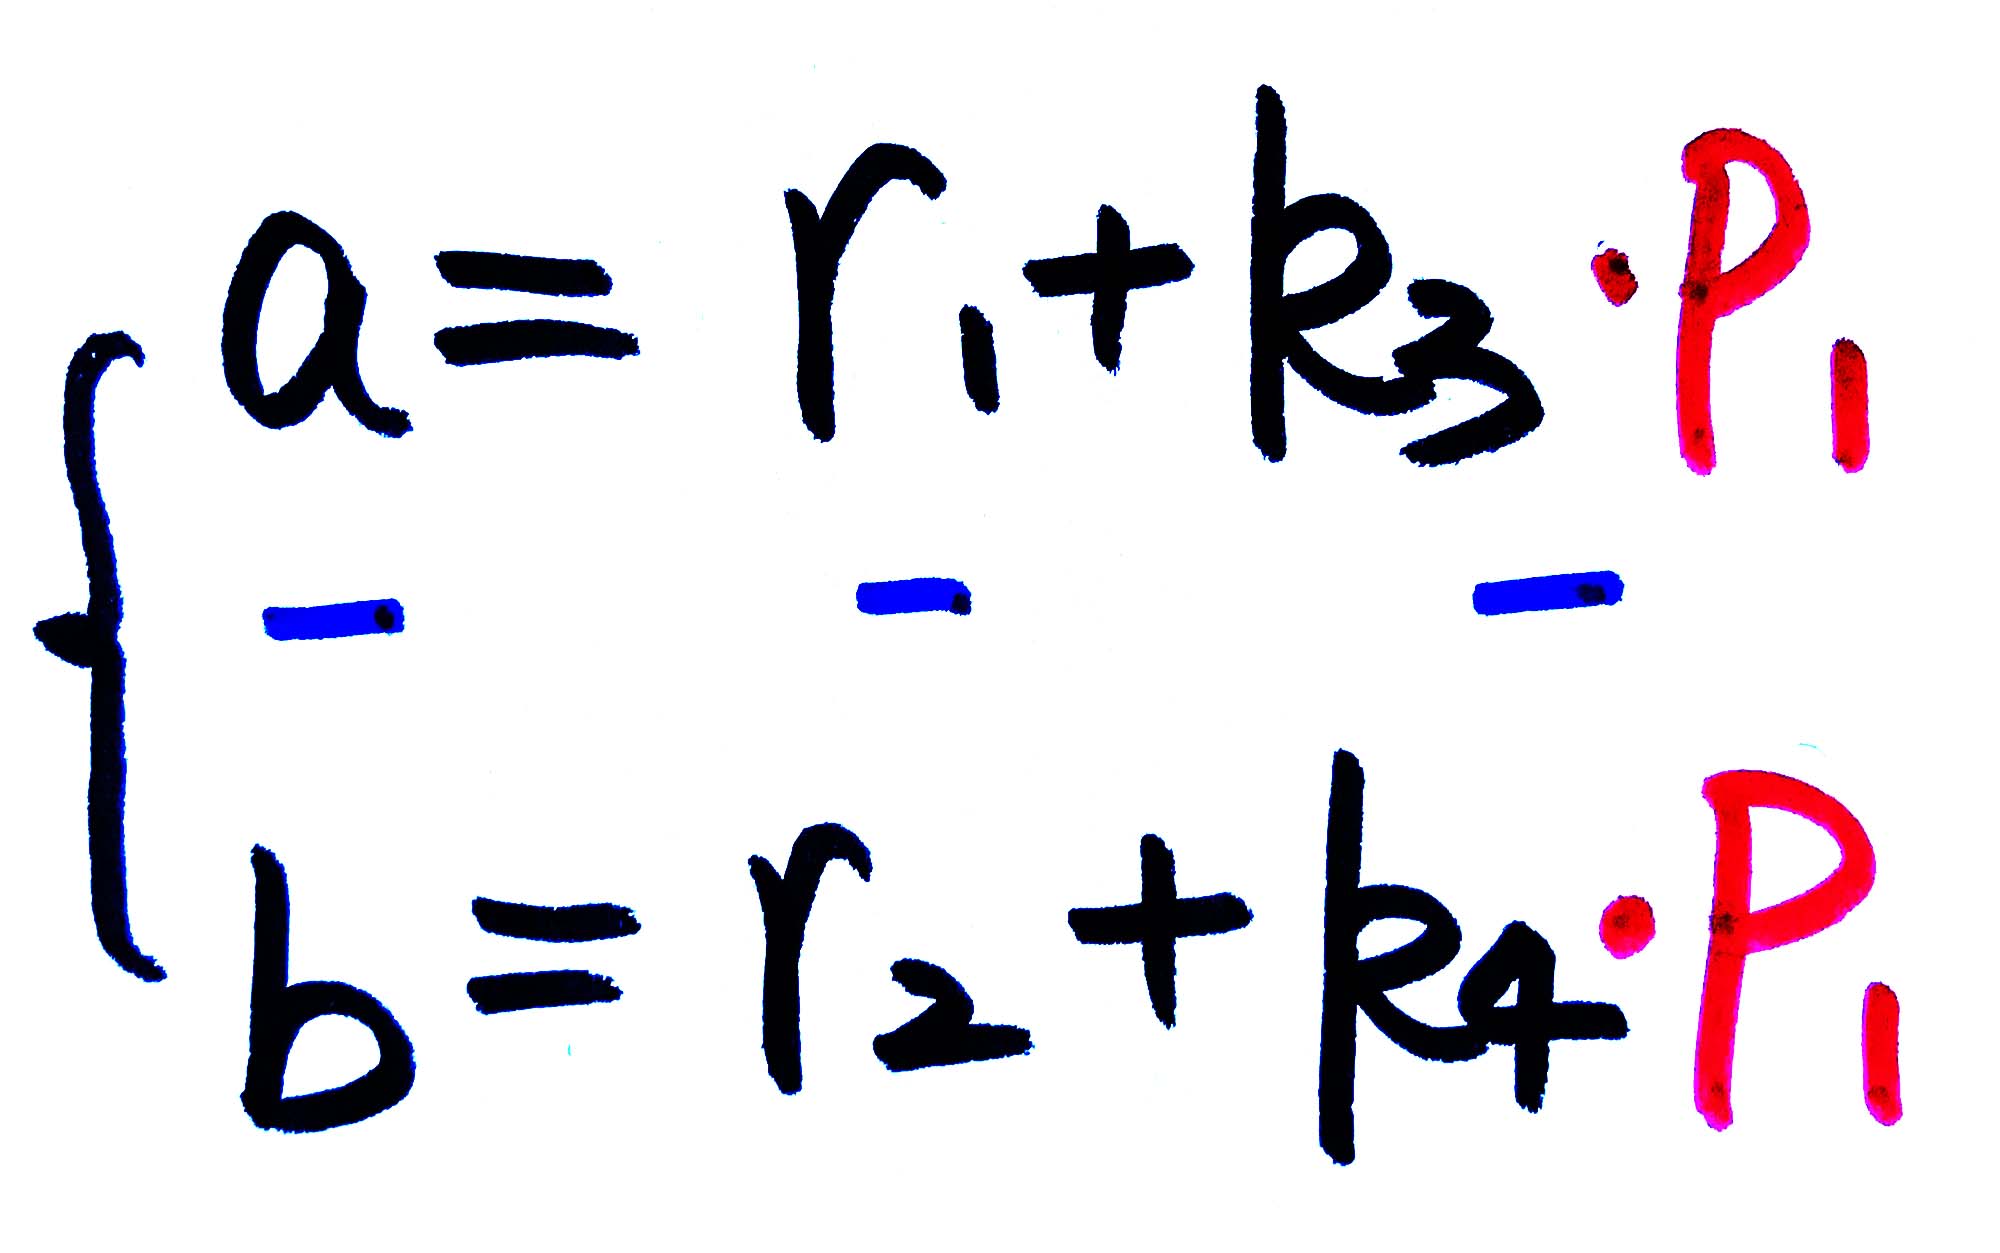 a = r₁ + k₃ · P₁
- - -
b = r₂ + k₄ · P₁